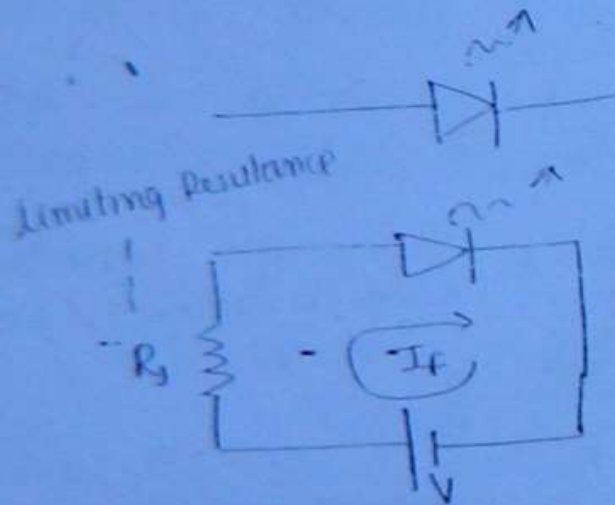 Limiting Resistance
Rs
IF
V